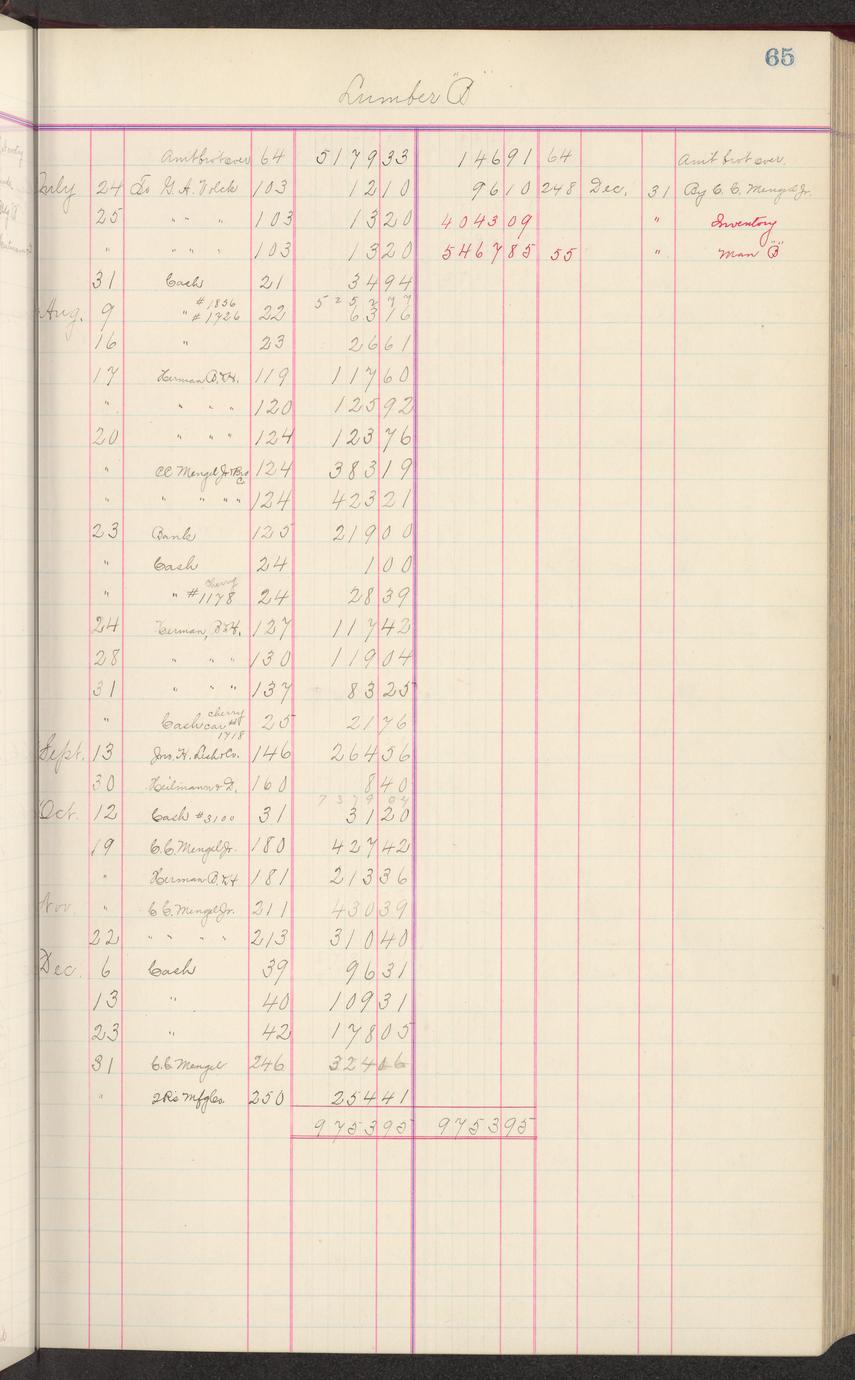 65
Lumber "B"
Amt brot over 64 5179 33 146 91 64 Amt brot over.
July 24 To G. A. Volck 103 12 10 96 10 248 Dec. 31 By C. C. Mengel Jr.
25 " " " 103 13 20 4043 09 " Inventory
" " " " 103 13 20 5467 85 55 " Man "B"
31 Cash 21 34 94
#1836 5252 77
Aug. 9 " #1726 22 63 16
16 " 23 26 61
17 Herman B. & H. 119 117 60
" " " " 120 125 92
20 " " " 124 123 76
" CC Mengel Jr & Bro Co 124 383 19
" " " " " 124 423 21
23 Bank 125 219 00
" Cash 24 1 00
cherry
" " #1178 24 28 39
24 Herman, B & H. 127 117 42
28 " " " 130 119 04
31 " " " 137 83 25
" Cash cherry car # 1718 25 21 76
Sept. 13 Jno. H. Lesh & Co. 146 264 56
30 Heilmann & D. 160 8 40
7379 04
Oct. 12 Cash #3100 31 31 20
19 C. C. Mengel Jr. 180 427 42
" Herman B. & H 181 213 36
Nov. " C. C. Mengel Jr. 211 430 39
22 " " " " 213 310 40
Dec. 6 Cash 39 96 31
13 " 40 109 31
23 " 42 178 05
31 C. C. Mengel 246 324 06
" Mfg Co. 250 254 41
9753 95 9753 95